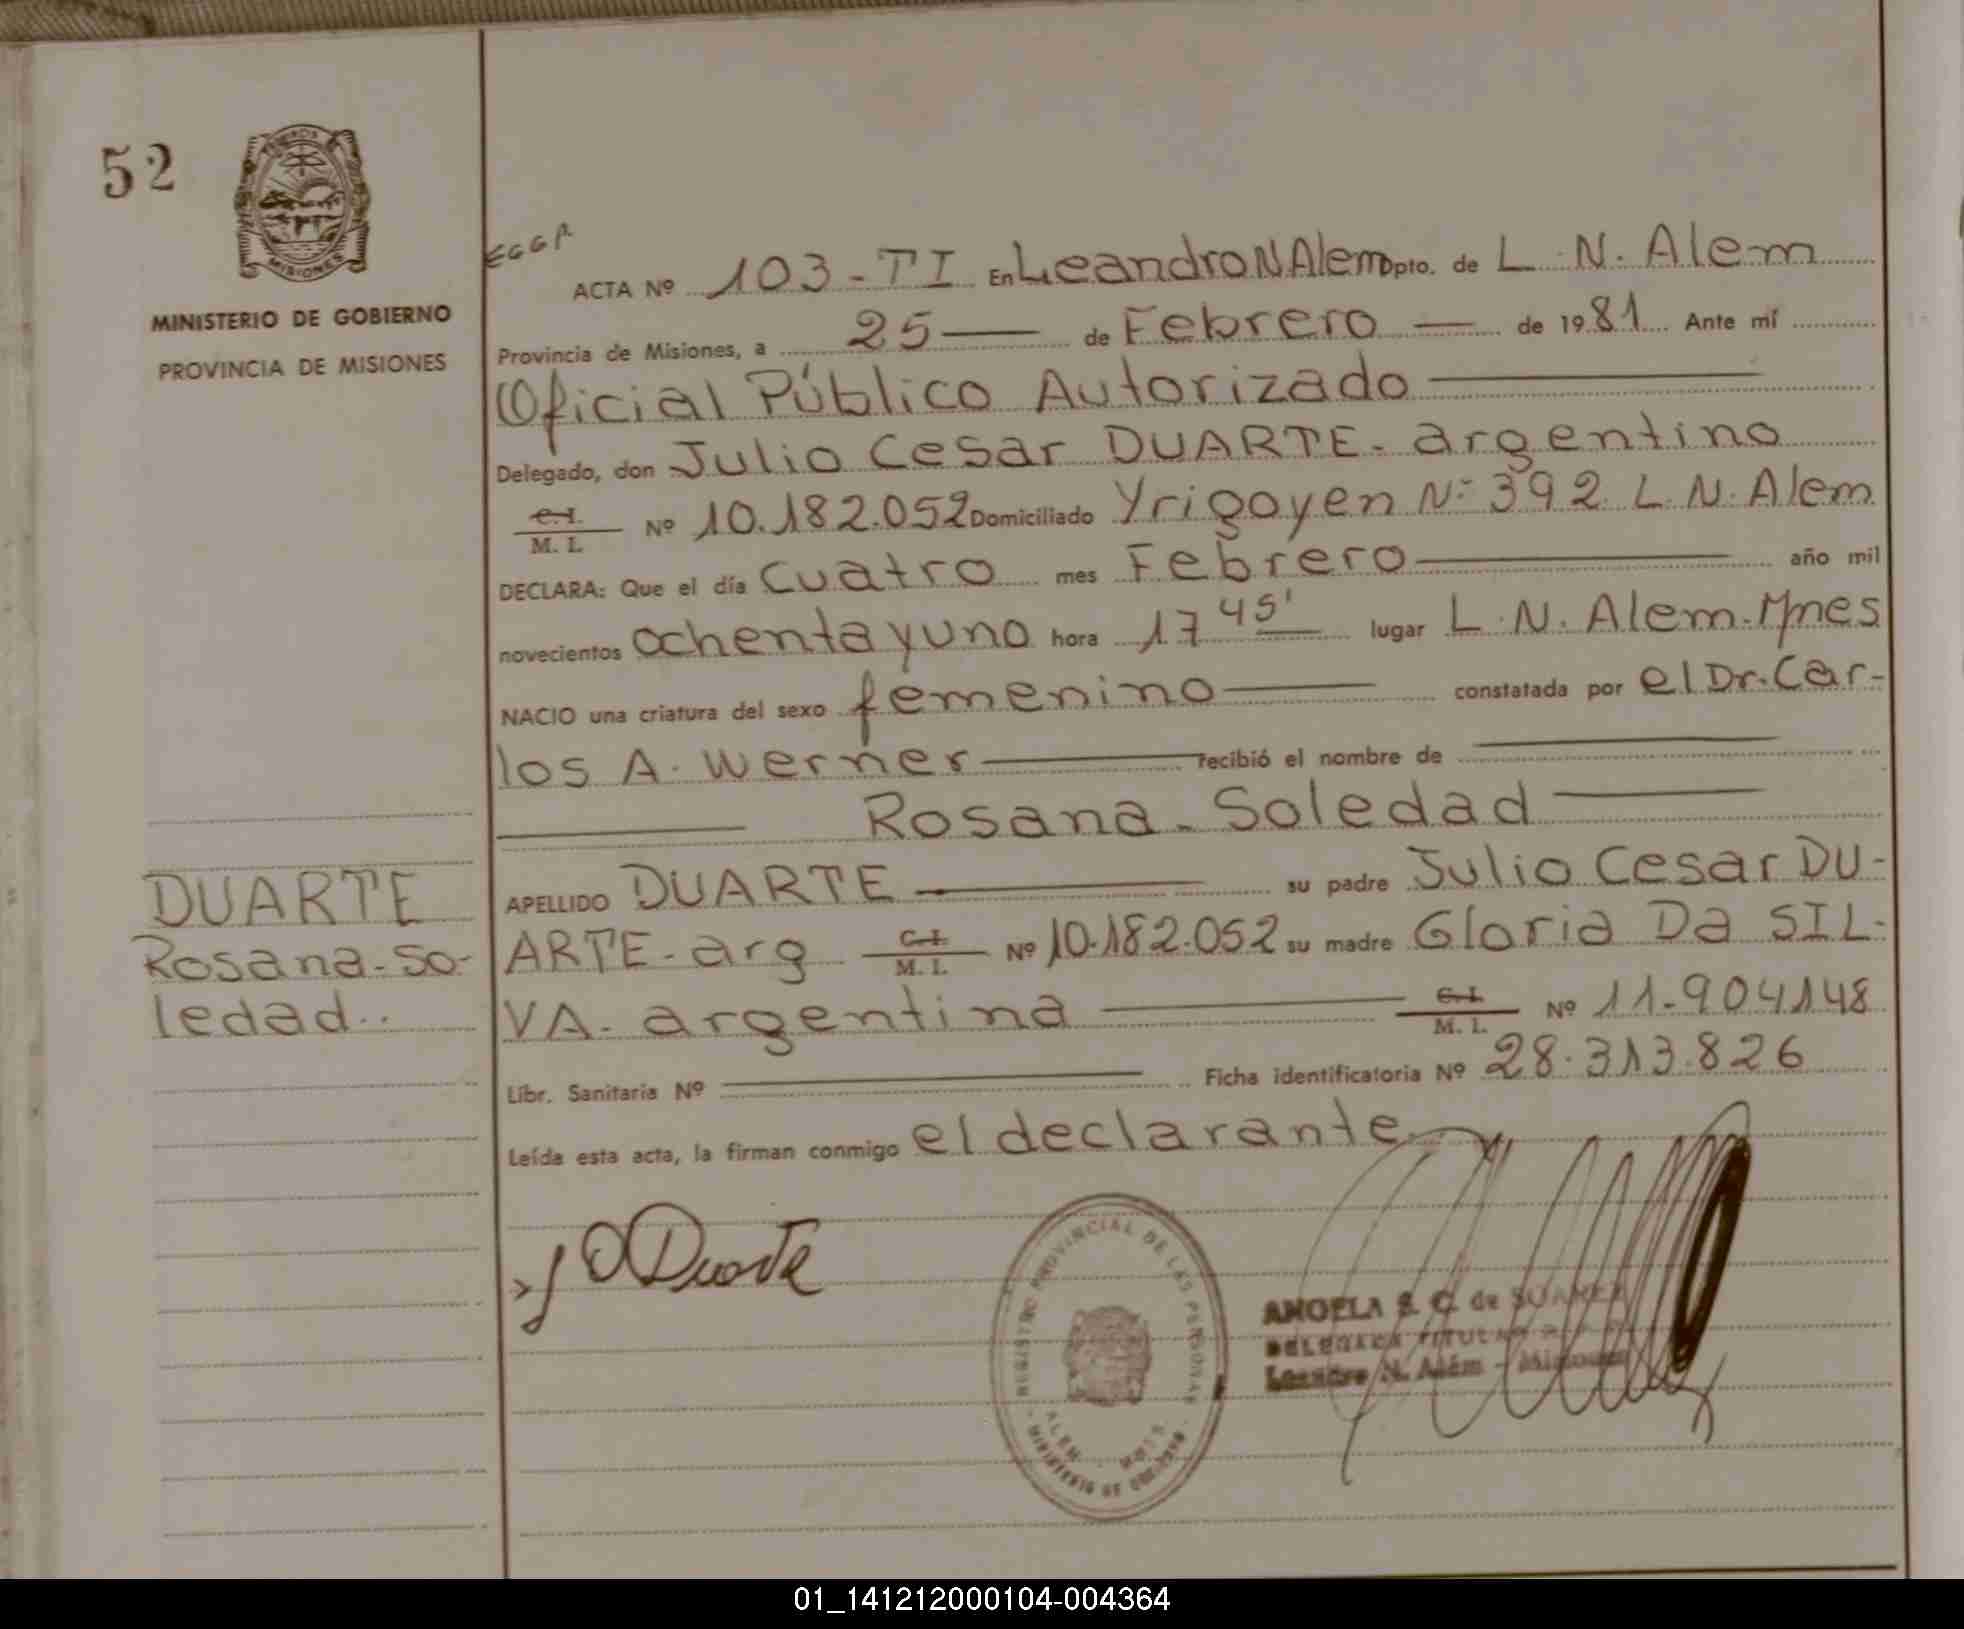 52
MISIONES
MINISTERIO DE GOBIERNO
PROVINCIA DE MISIONES
ACTA Nº 103-TI En Leandro N Alem Dpto. de L. N. Alem
Provincia de Misiones, a 25 de Febrero de 1981 Ante mí
Oficial Público Autorizado
Delegado, don Julio Cesar DUARTE - argentino
C.I.
M. I. Nº 10.182.052 Domiciliado Yrigoyen Nº 392 L. N. Alem
DECLARA: Que el día cuatro mes Febrero año mil
novecientos ochenta y uno hora 17 45' lugar L. N. Alem - Mnes
NACIO una criatura del sexo femenino constatada por el Dr. Car-
los A. Werner recibió el nombre de
Rosana - Soledad
DUARTE
Rosana - So-
ledad..
APELLIDO DUARTE su padre Julio Cesar DU-
ARTE - arg C.I. M. I. Nº 10.182.052 su madre Gloria Da SIL-
VA - argentina C.I. M. I. Nº 11.904148
Libr. Sanitaria Nº Ficha identificatoria Nº 28.313.826
Leída esta acta, la firman conmigo el declarante
Duarte
REGISTRO PROVINCIAL DE LAS PERSONAS
ALEM - MNES
MINISTERIO DE GOBIERNO
ANGELA S. C. de SUAREZ
DELEGADA TITULAR
Leandro N. Além - Misiones
01_141212000104-004364